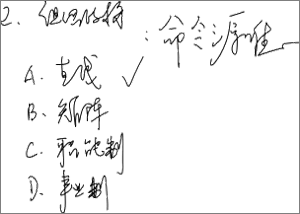 2. 组织结构：命令源唯一
A. 直线 ✓
B. 矩阵
C. 职能制
D. 事业制